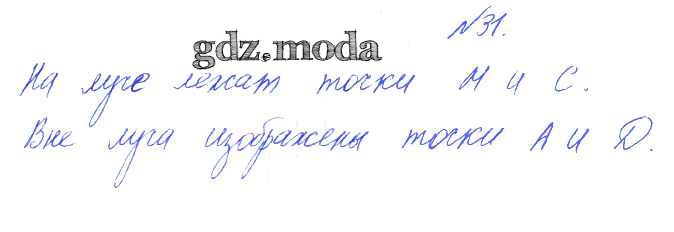 №31.
gdz.moda
На луче лежат точки М и С.
Вне луча изображены точки А и D.